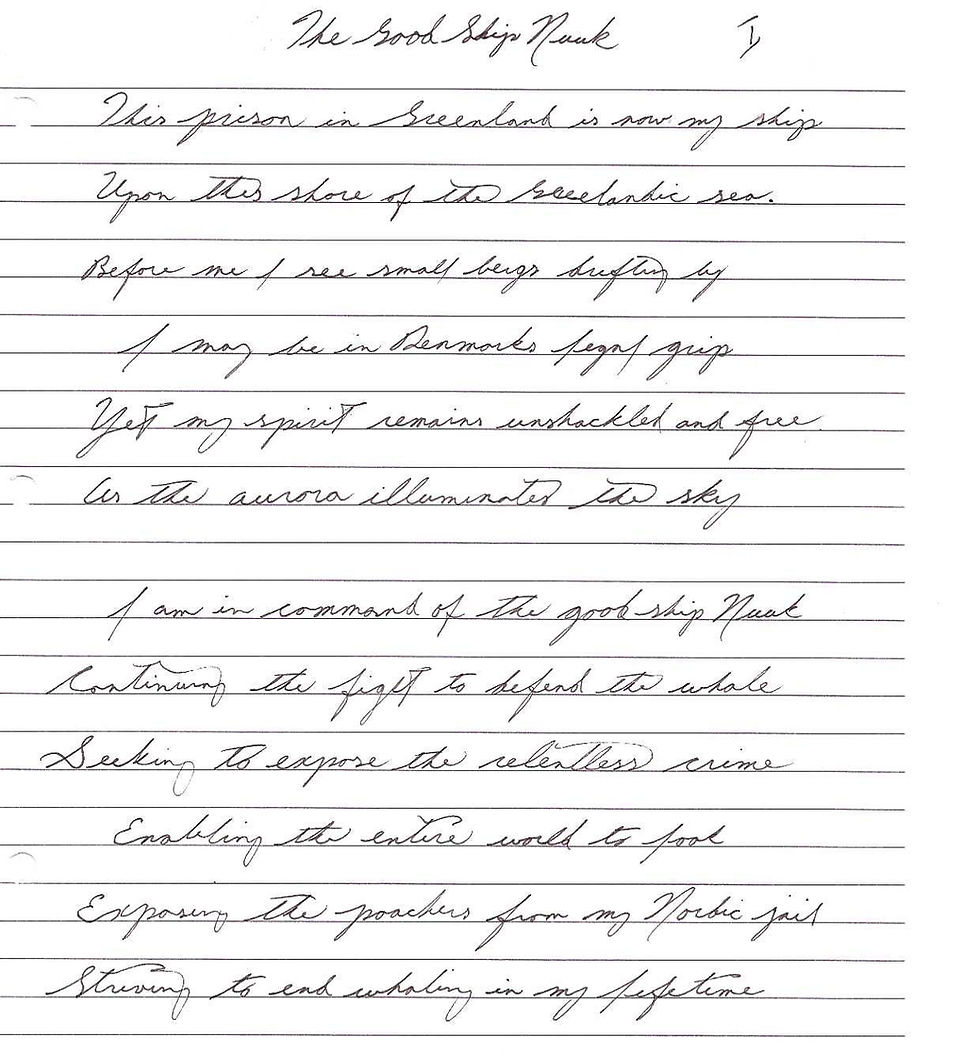 The Good Ship Nuuk 1)
This prison in Greenland is now my ship
Upon this shore of the Greelandic sea.
Before me I see small bergs drifting by
I may be in Denmarks legal grip
Yet my spirit remains unshackled and free.
As the aurora illuminates the sky
I am in command of the good ship Nuuk
Continuing the fight to defend the whale
Seeking to expose the relentless crime
Enabling the entire world to look
Exposing the poachers from my Nordic jail
Striving to end whaling in my lifetime